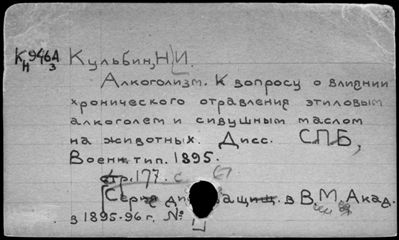 К 946А Кульбин, Н.И.
Н З
Алкоголизм. К вопросу о влиянии
хронического отравления этиловым
алкоголем и сивушным маслом
на животных. Дисс. СПБ,
Военн. тип. 1895.
стр. 177. с. 67
[Серия дис защищ. в В.М. Акад.
в 1895-96 г. №